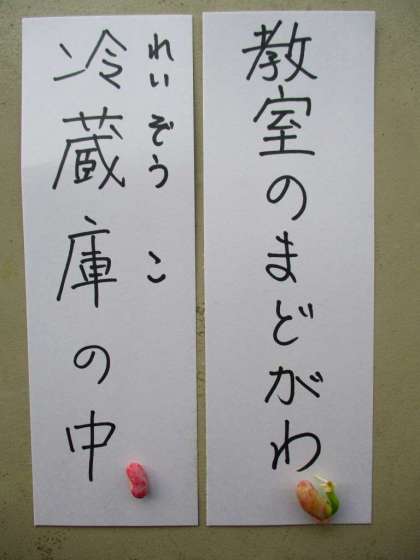 教室のまどがわ
冷蔵庫の中
れいぞうこ